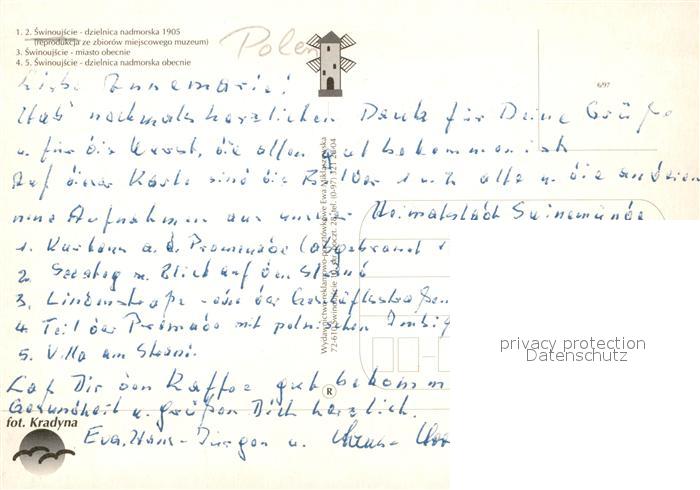 1. 2. Świnoujście - dzielnica nadmorska 1905
(reprodukcja ze zbiorów miejscowego muzeum)
3. Świnoujście - miasto obecnie
4. 5. Świnoujście - dzielnica nadmorska obecnie
Polen
6/97
Liebe Annemarie!
Hab nochmals herzlichen Dank für Deine Grüße
u. für die Wurst, die allen gut bekommen ist
Auf dieser Karte sind die Bilder 1 u. 2 alte u. die anderen
neue Aufnahmen aus unserer Heimatstadt Swinemünde
1. Kurhaus a. d. Promenade (abgebrannt
2. Seesteg m. Blick auf den Strand
3. Lindenstraße - eine der Geschäftsstraßen
4. Teil der Promenade mit polnischen Imbiß
5. Villa am Strand.
Laß Dir den Kaffee gut bekomm
Gesundheit u. grüßen Dich herzlich.
Eva, Hans-Jürgen u.
Wydawnictwo reklamowo-pocztówkowe Ewa Mikłaszewska
72-610 Świnoujście 10, skr. poczt. 28, tel. (0-97) 321 28 04
R
fot. Kradyna
privacy protection
Datenschutz